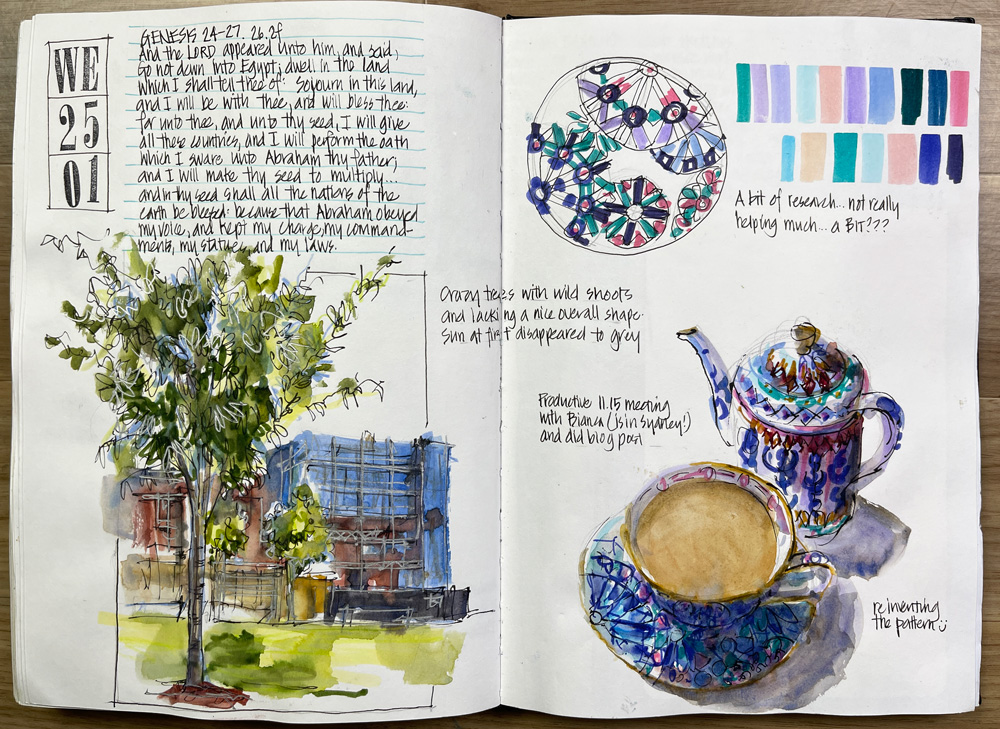 WE
25
01
GENESIS 24-27. 26.2f
And the LORD appeared unto him, and said,
Go not down into Egypt; dwell in the land
which I shall tell thee of: Sojourn in this land,
and I will be with thee, and will bless thee:
for unto thee, and unto thy seed, I will give
all these countries, and I will perform the oath
which I sware unto Abraham thy father;
and I will make thy seed to multiply...
and in thy seed shall all the nations of the
earth be blessed: because that Abraham obeyed
my voice, and kept my charge, my command-
ments, my statutes, and my laws.
Crazy trees with wild shoots
and lacking a nice overall shape.
Sun at first disappeared to grey
A bit of research... not really
helping much... a BIT???
Productive 11.15 meeting
with Bianca (is in Sydney!)
and did blog post
reinventing
the pattern